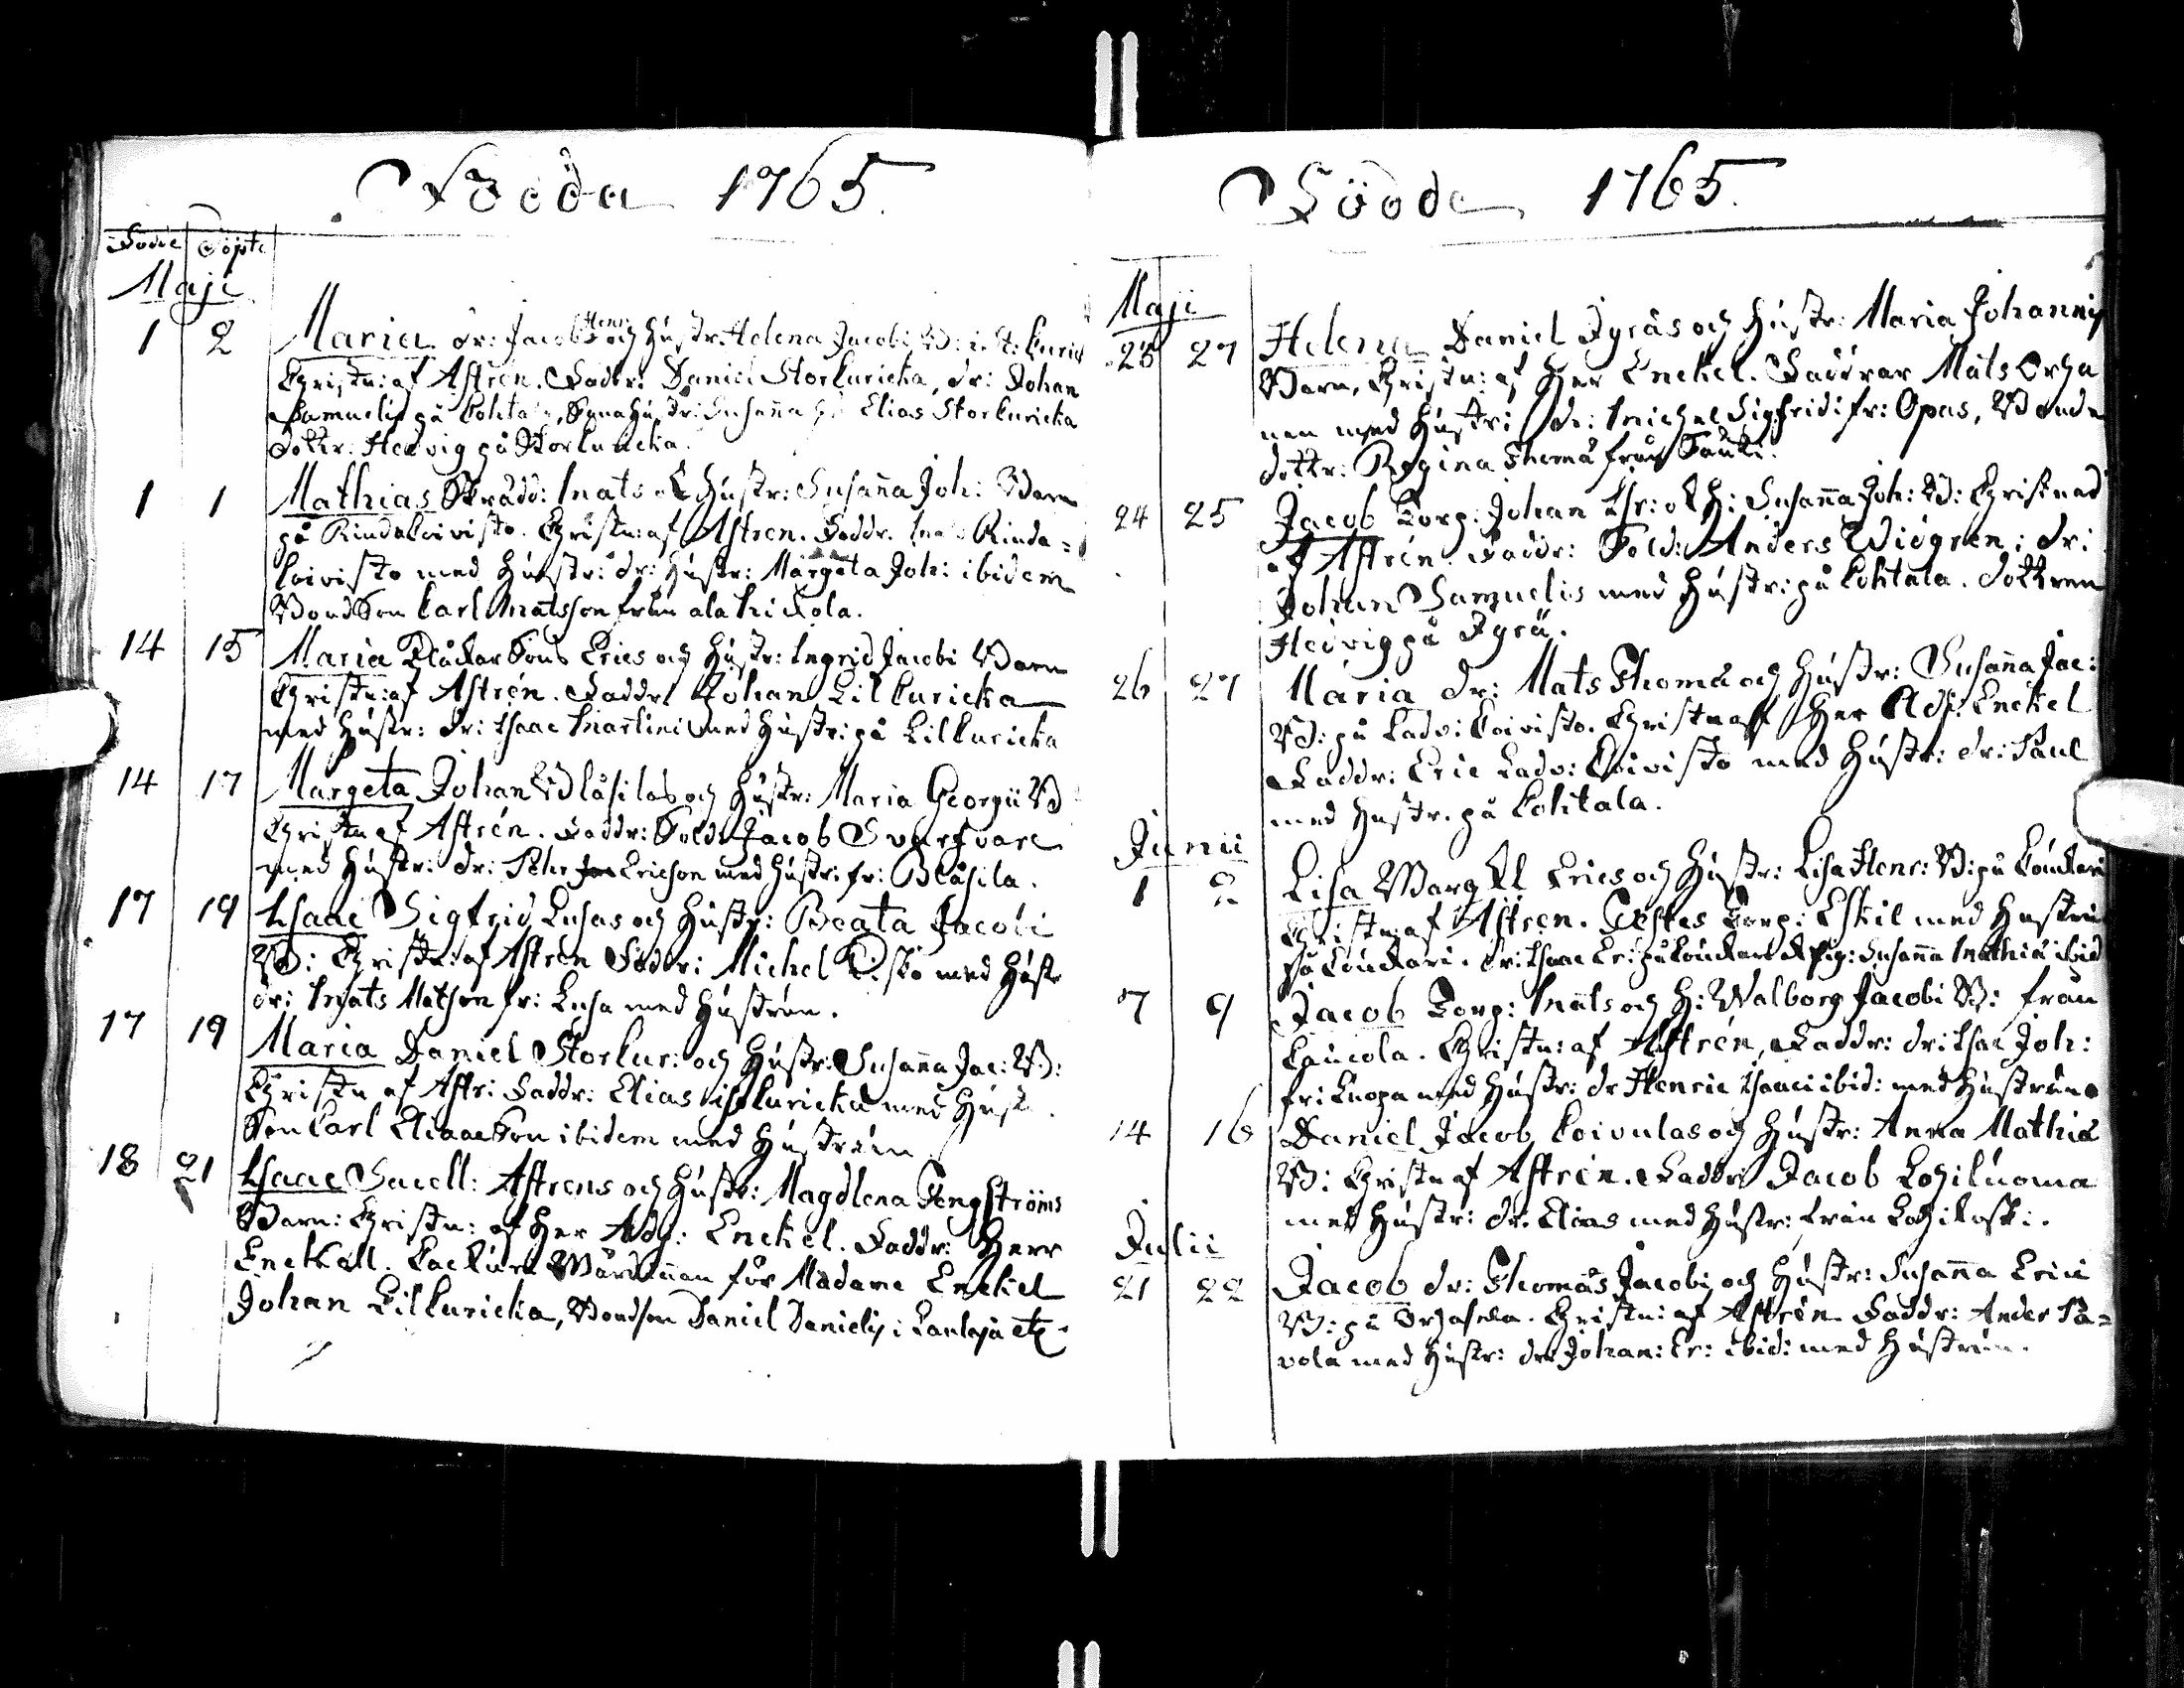 Födda 1765.
Födde Döpte
Maji
1 2 Maria dr: Jacob Henr och Hustr: Helena Jacobi B: i St: Kurick
Christn: af Astrén. Faddr: Daniel Storkuricka, dr: Johan
Samuelis på Kohtala, Hustr: Susanna Elias Storkuricka
dottr: Hedvig på Storkuricka.
1 1 Mathias Skrädd: Mats & Hustr: Susanna Joh: Barn
på Rindakoivisto. Christn: af Astren. Faddr. Mats Rinda=
koivisto med Hustr: dr: Hustr: Margeta Joh: ibidem
Bondson Carl Matsson från
14 15 Maria Klåckar Sons Erics och Hustr: Ingrid Jacobi Barn
Christn: af Astrén. Faddr Johan Lillkuricka
med Hustr: dr: Isaac Martini med Hustr: på Lillkuricka
14 17 Margeta Johan och Hustr: Maria Georgii B
Christn af Astrén. Faddr: Sold: Jacob Svarfvare
med Hustr: dr: Pehr Ericson med Hustr: fr: Blåsila.
17 19 Isaac Sigfrid Luhas och Hustr: Beata Jacobi
B: Christn: af Astren Faddr: Michel med Hustr
dr: Mats Matson fr: Luha med Hustrun.
17 19 Maria Daniel Storkur: och Hustr: Susanna Jac: B:
Christn af Astr: Faddr: Elias Kuricka med Hust
Son Carl Eliaae Son ibidem med Hustrun
18 21 Isaac Sacell: Astrens och Hustr: Magdlena Tengströms
Barn: Christn: af Her Adj: Enckel. Faddr: Herr
Enckell. för Madame Enckel
Johan Lillkuricka, Bondson Daniel Danielis i etc.
Födde 1765.
Maji
23 27 Helena Daniel Jyräs och Hustr: Maria Johannis
Barn, Christn: af Her Enckel. Faddrar Mats Orha
nen med Hustr: dr: Michael Sigfridi fr: Opas, Bonde
dottr: Regina Thomæ från
24 25 Jacob Torp: Johan Isr: & H: Susanna Joh: B: Christnad
af Astrén. Faddr: Sold: Anders Widgren: dr:
Johan Samuelis med Hustr: på Kohtala. dottren
Hedvig på Jyrä.
26 27 Maria dr: Mats Thomæ och Hustr: Susanna Jac:
B: på Ladv: Koivisto. Christn aff Her Adj: Enckel
Faddr: Eric Ladv: Koivisto med Hustr: dr: Paul
med Hustr. på Kohtala.
Junii
1 2 Lisa Erics och Hustr: Lisa Henr: B: på Louckari
Christn: af Astren. Torp: Eskil med Hustru
på Louckari. dr: Isaac Er: på Louckari pig: Susanna Mathiæ ibid
7 9 Jacob Torp: Mats och H: Walborg Jacobi B: från
Christn: af Astrén, Faddr: dr: Isac Joh:
fr: Luopa med Hustr: dr Henric Isaaci ibid: med Hustrun
14 16 Daniel Jacob Koivulas och Hustr: Anna Mathiæ
B: Christn af Astrén. Faddr Jacob Lohiluoma
med Hustr: dr: Elias med Hustr: från Lohikoski.
Julii
21 22 Jacob dr: Thomas Jacobi och Hustr: Susanna Erici
B: på Christn: af Astrén Faddr: Ander Pa=
vola med Hustr: dr Johan: Er: ibid: med Hustrun.